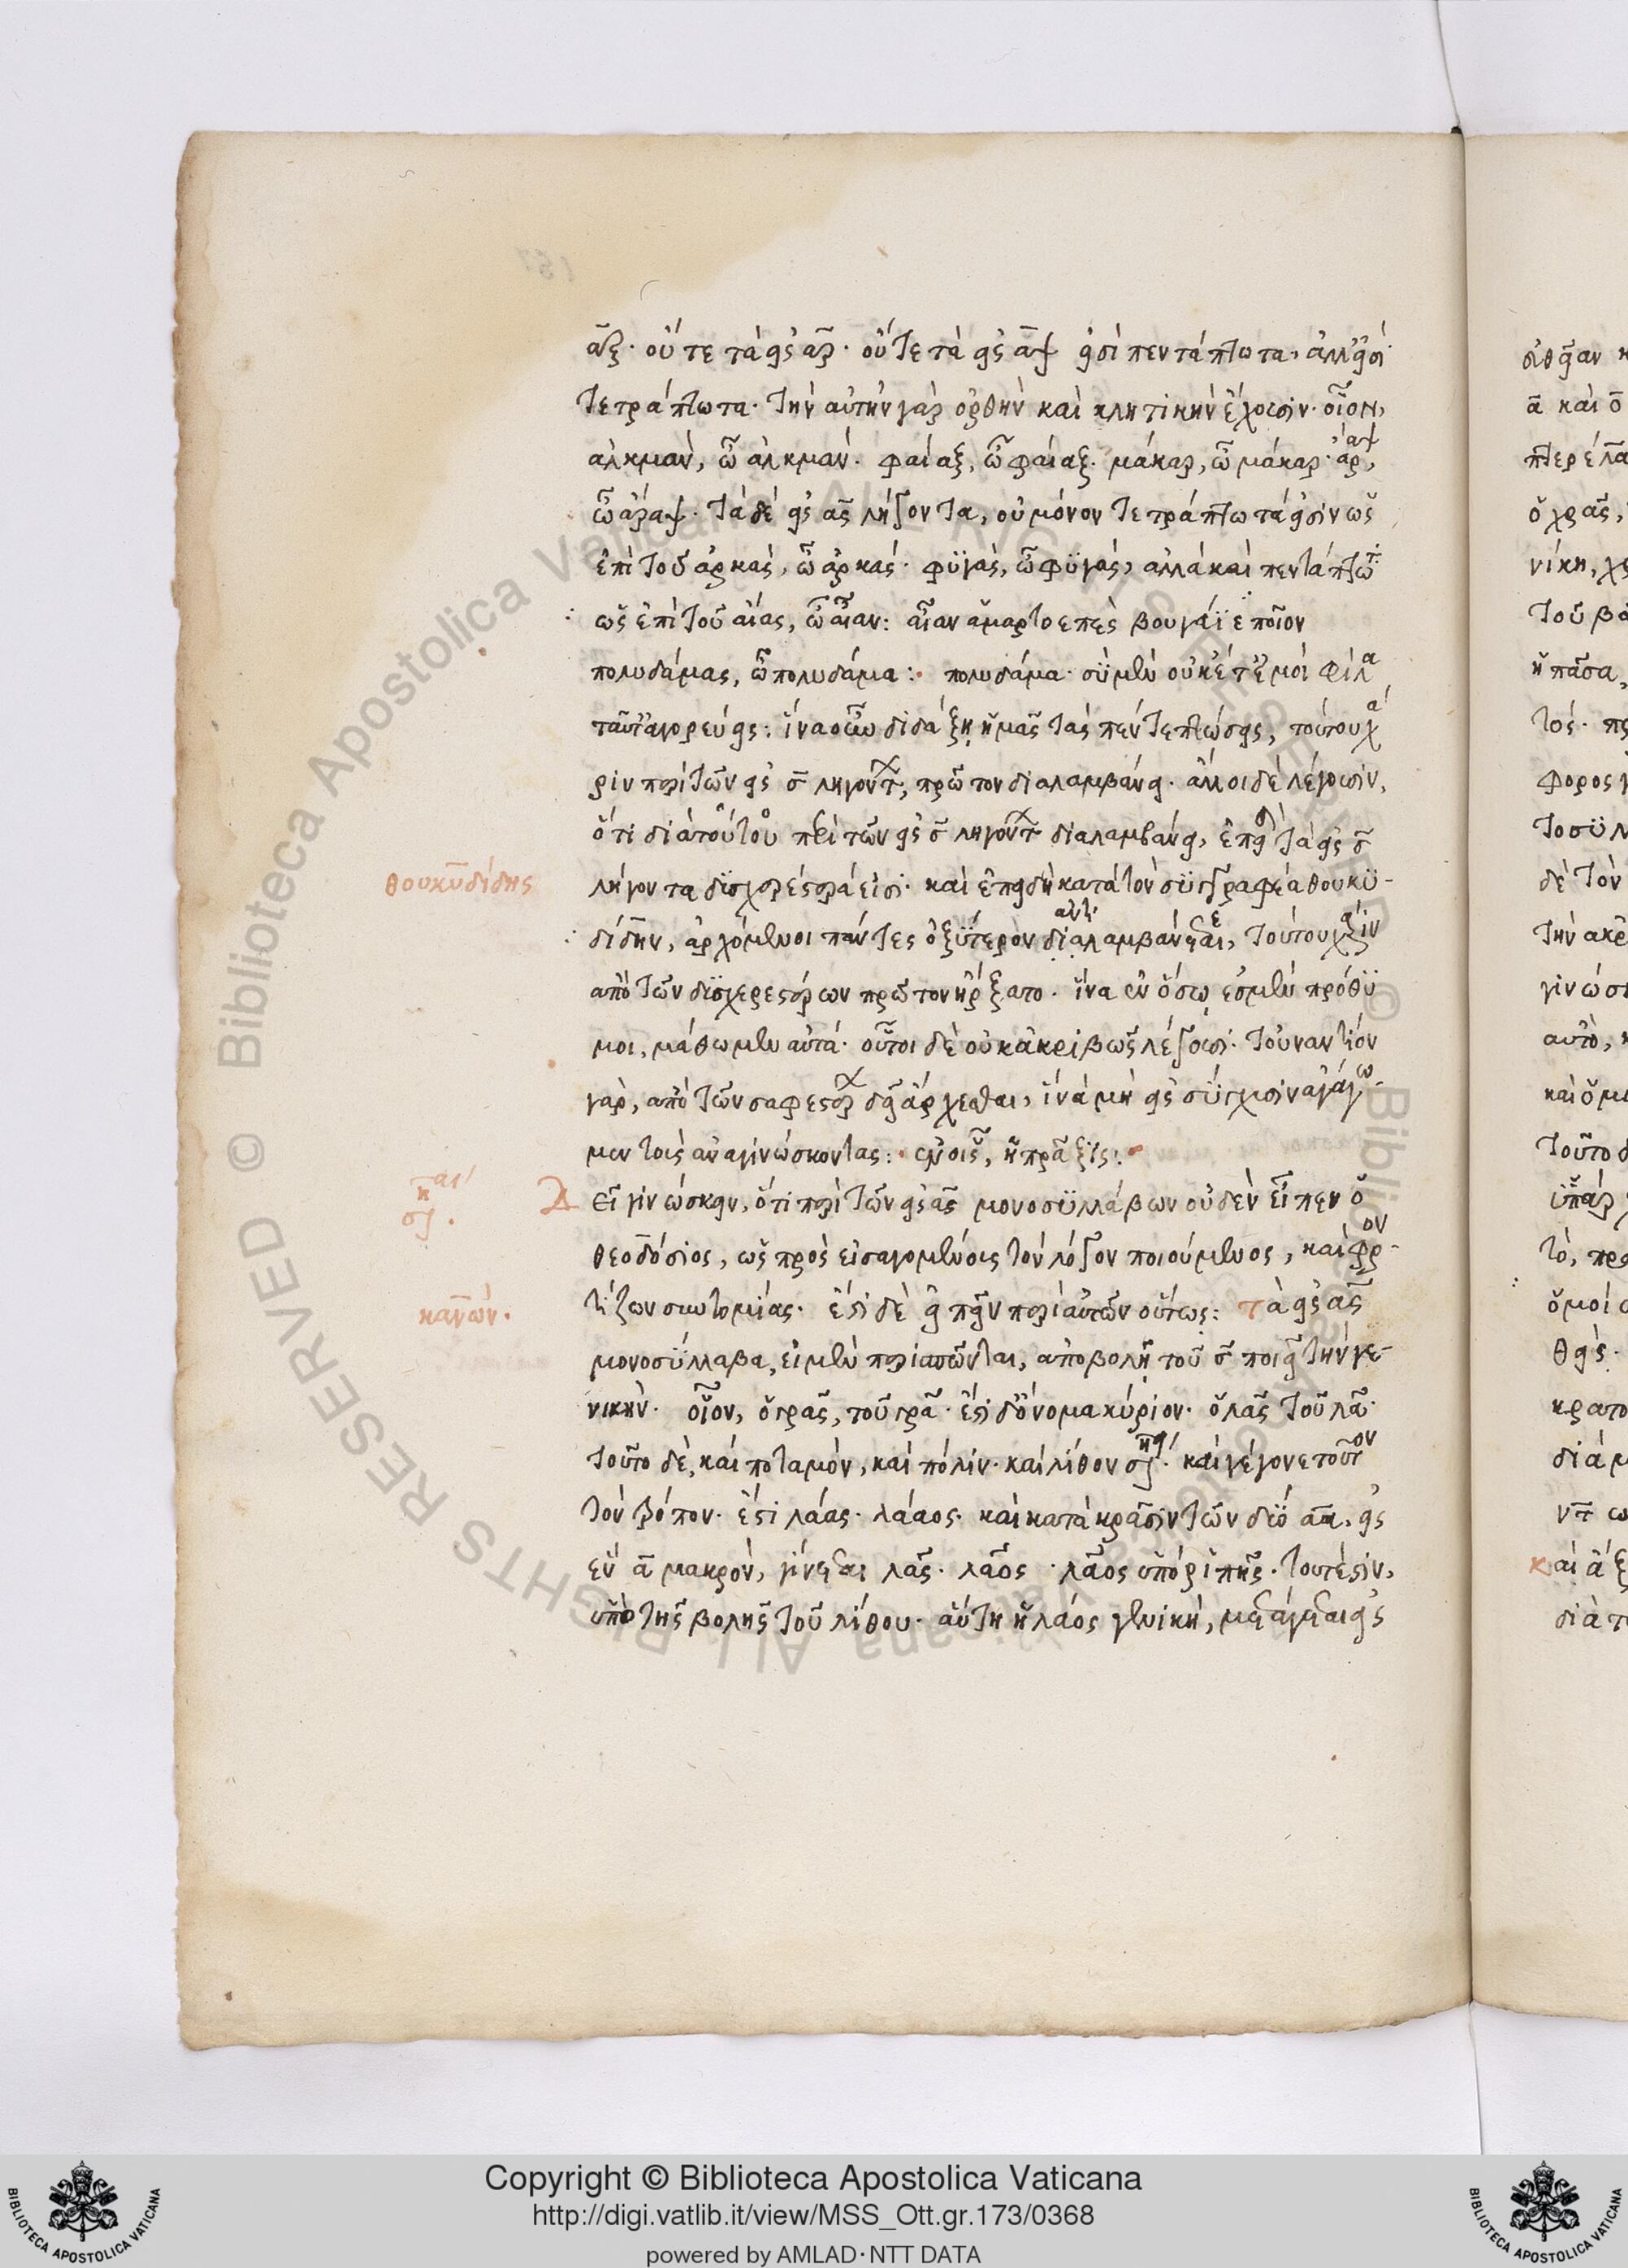 αξ· οὔτε τὰ εἰς αρ· οὔτε τὰ εἰς αψ εἰσὶ πεντάπτωτα, ἀλλ' εἰσὶ
τετράπτωτα· τὴν αὐτὴν γὰρ ὀρθὴν καὶ κλητικὴν ἔχουσιν· οἷον,
ἀλκμὰν, ὦ ἀλκμάν· φαίαξ, ὦ φαίαξ· μάκαρ, ὦ μάκαρ· ἄραψ,
ὦ ἄραψ· τὰ δὲ εἰς ας λήγοντα, οὐ μόνον τετράπτωτά εἰσιν ὡς
ἐπὶ τοῦ ἀρκάς, ὦ ἀρκάς· φυγὰς, ὦ φυγάς, ἀλλὰ καὶ πεντάπτωτ
ὡς ἐπὶ τοῦ αἴας, ὦ αἶαν: αἶαν ἁμαρτοεπὲς βουγάϊε ποῖον
πολυδάμας, ὦ πολυδάμα: πολυδάμα· σὺ μὲν οὐκέτ' ἐμοὶ φίλα
ταῦτ' ἀγορεύεις: ἵνα οὖν διδάξῃ ἡμᾶς τὰς πέντε πτώσεις, τούτου χά
ριν περὶ τῶν εἰς ς ληγόντων, πρῶτον διαλαμβάνει· ἄλλοι δὲ λέγουσιν,
ὅτι διὰ τοῦτο περὶ τῶν εἰς ς ληγόντων διαλαμβάνει, ἐπειδὴ τὰ εἰς ς
θουκυδίδης
λήγοντα δυσχερέστερά εἰσι· καὶ ἐπειδὴ κατὰ τὸν συγγραφέα θουκυ-
δίδην, ἀρχόμενοι πάντες ὀξύτερον ἀντιλαμβάνεσθε, τούτου χάριν
ἀπὸ τῶν δυσχερεστέρων πρῶτον ἤρξατο· ἵνα ἐν ὅσῳ ἐσμὲν πρόθυ
μοι, μάθωμεν αὐτά· οὗτοι δὲ οὐκ ἀκριβῶς λέγουσι· τοὐναντίον
γὰρ, ἀπὸ τῶν σαφεστέρων δεῖ ἄρχεσθαι, ἵνα μὴ εἰς σύγχυσιν ἀγάγω-
μεν τοὺς ἀναγινώσκοντας: ἐν οἷς, ἡ πρᾶξις:
σημείωσαι.
Δεῖ γινώσκειν, ὅτι περὶ τῶν εἰς ας μονοσυλλάβων οὐδὲν εἶπεν ὁ
θεοδόσιος, ὡς πρὸς εἰσαγομένους τὸν λόγον ποιούμενος, καὶ φρον-
κανών.
τίζων συντομίας· ἔστι δὲ εἰπεῖν περὶ αὐτῶν οὕτως: τὰ εἰς ας
μονοσύλλαβα, εἰ μὲν περισπῶνται, ἀποβολῇ τοῦ ς ποιεῖ τὴν γε-
νικήν· οἷον, ὁ γρᾶς, τοῦ γρᾶ· ἔστι δ' ὄνομα κύριον· ὁ λᾶς τοῦ λᾶ·
τοῦτο δὲ, καὶ ποταμὸν, καὶ πόλιν· καὶ λίθον σημαίνει· καὶ γέγονε τοῦτον
τὸν τρόπον· ἔστι λάας· λάαος· καὶ κατὰ κρᾶσιν τῶν δύο αα, εἰς
ἓν α μακρὸν, γίνεται λᾶς· λᾶος· λᾶος ὑπὸ ῥιπῆς· τουτέστιν,
ὑπὸ τῆς βολῆς τοῦ λίθου· αὕτη ἡ λᾶος γενικὴ, μετάγεται εἰς
Copyright © Biblioteca Apostolica Vaticana
http://digi.vatlib.it/view/MSS_Ott.gr.173/0368
powered by AMLAD·NTT DATA